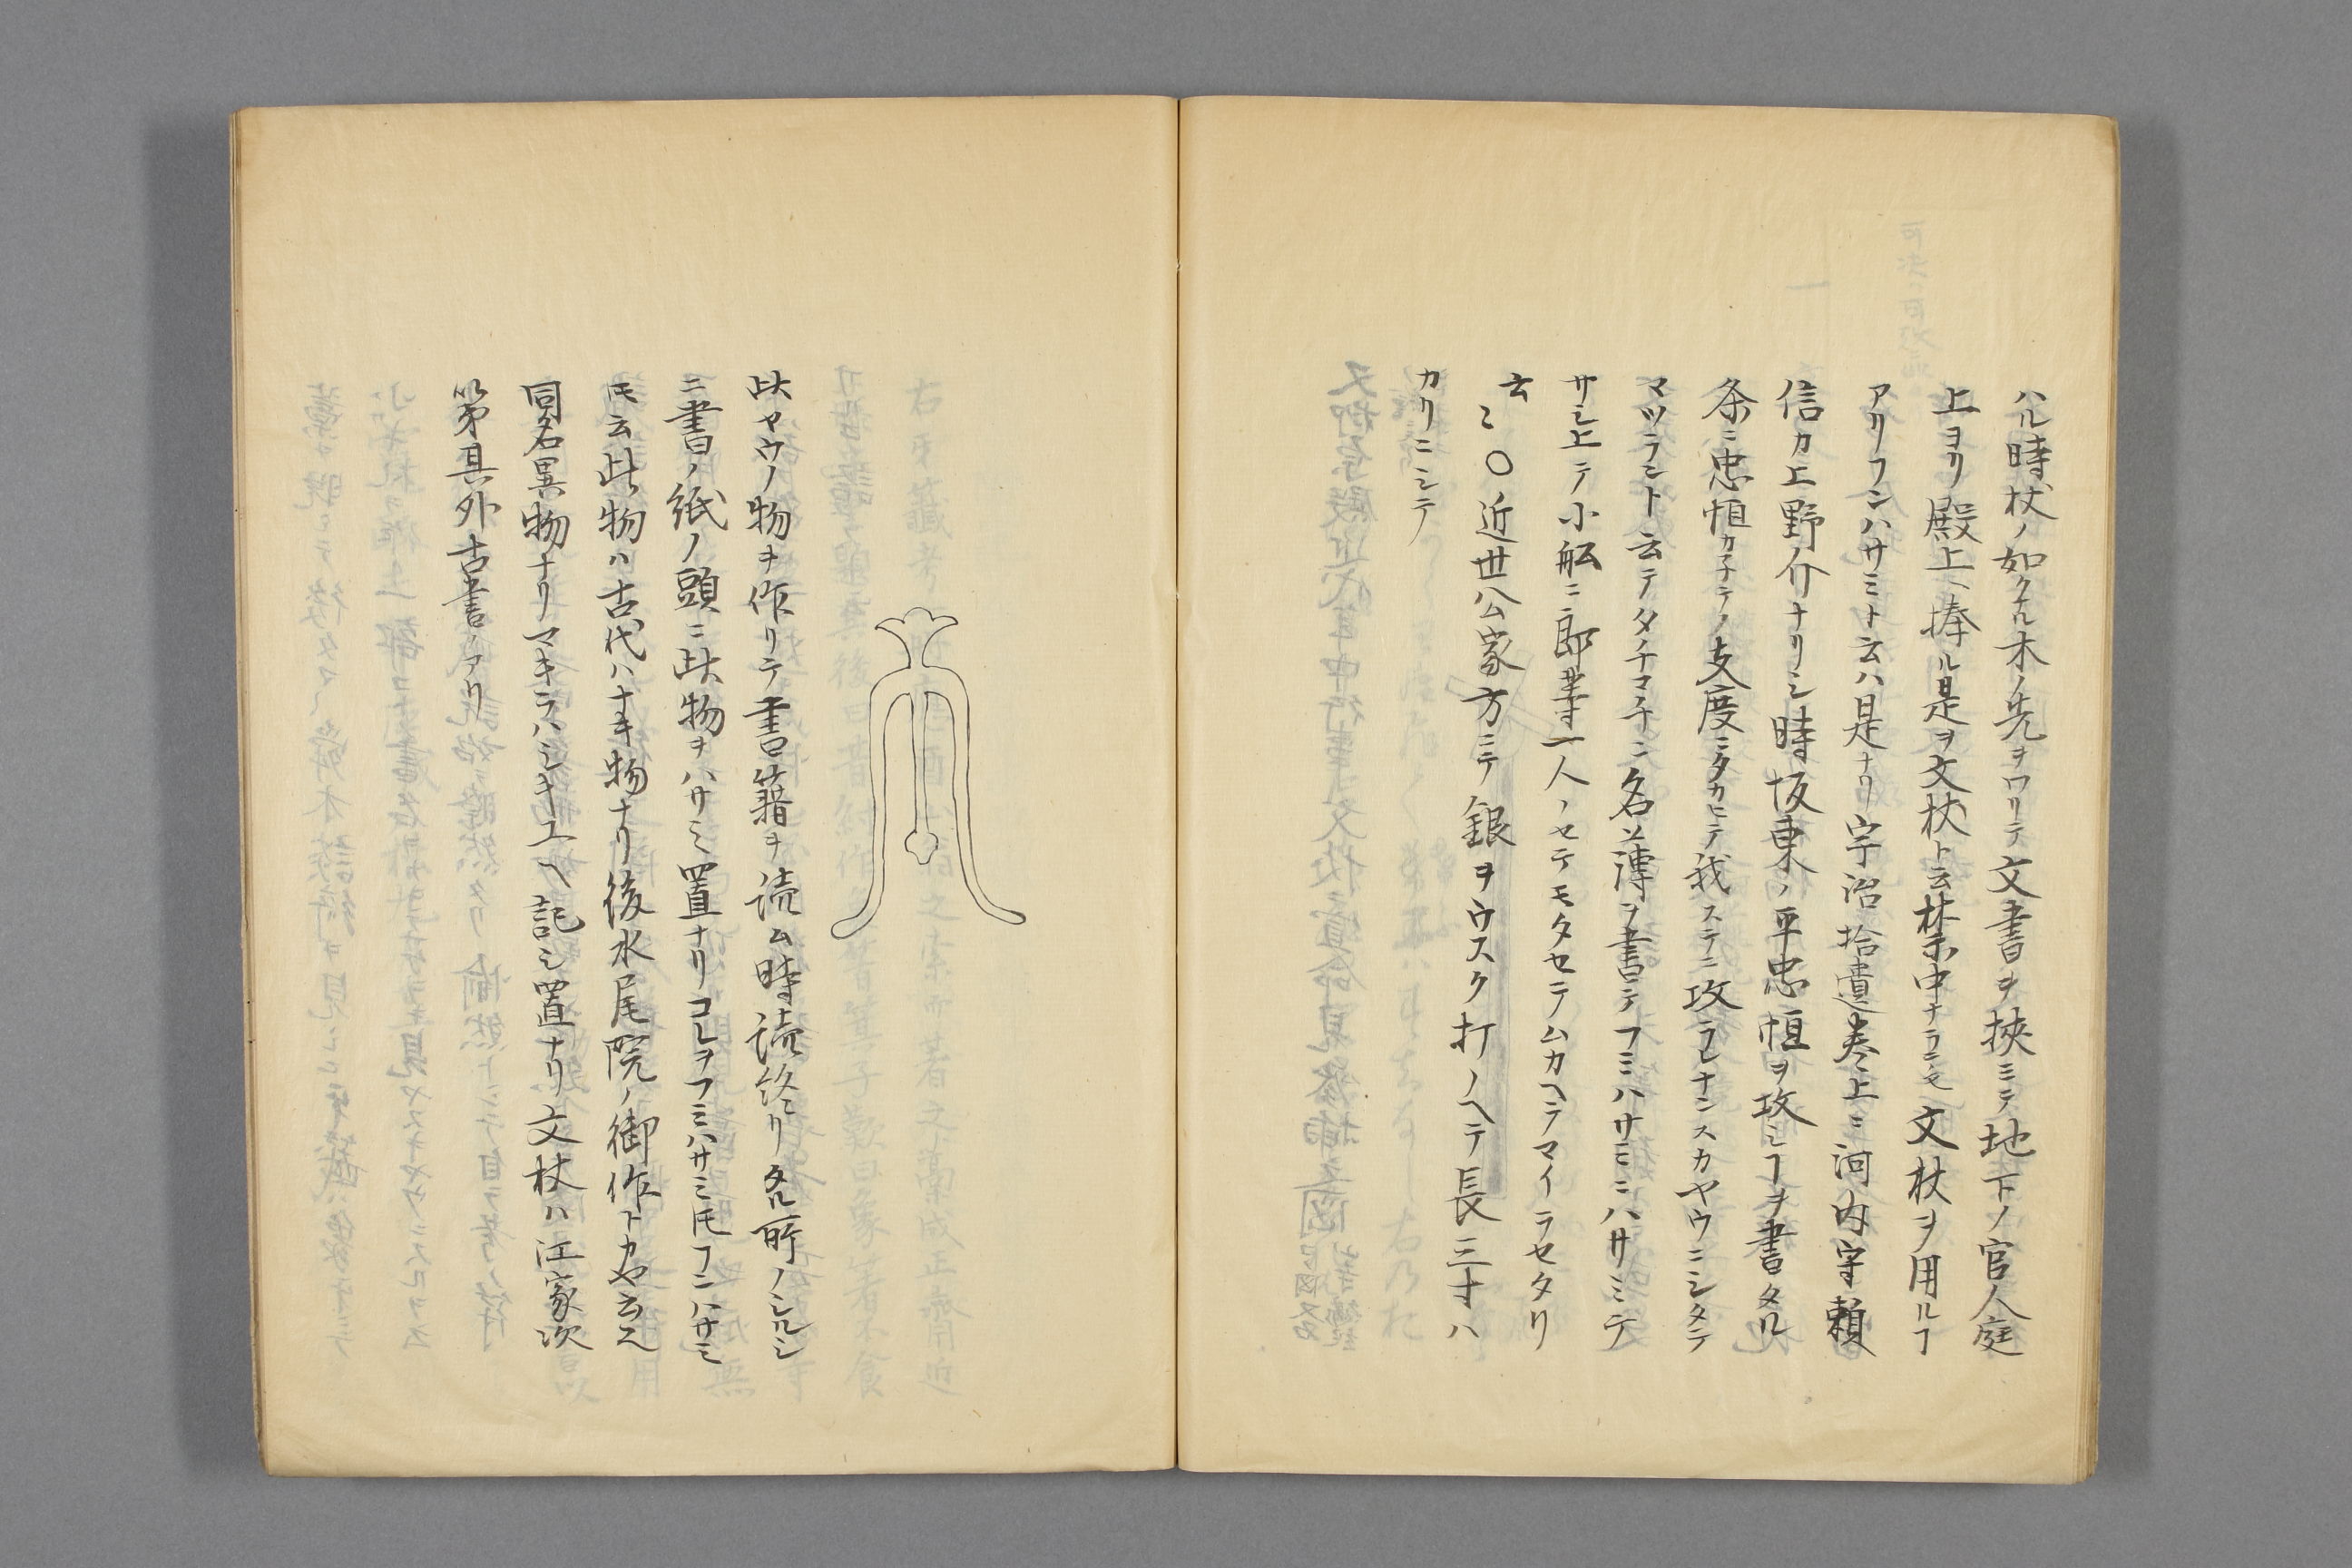 ハル時杖ノ如クナル木ノ先ヲワリテ文書ヲ挾ミテ地下ノ官人庭
上ヨリ殿上ヘ捧ル是ヲ文杖ト云禁中ナラテモ文杖ヲ用ルヿ
アリフンハサミト云ハ是ナリ宇治拾遺巻上ニ河内守頼
信カ上野介ナリシ時坂東ノ平忠恒ヲ攻シヿヲ書タル
条ニ忠恒カ子テノ支度ニタカヒテ我ステニ攻ラレナンスカヤウニシタテ
マツラント云テタチマチニ名簿ヲ書テフミハサミニハサミテ
サシ上テ小舩ニ郎等一人ノセテモタセテムカヘテマイラセタリ
云〻○近世公家方ニテ銀ヲウスク打ノヘテ長三寸ハ
カリニシテ
此ヤウノ物ヲ作リテ書籍ヲ読ム時読終リタル所ノシルシ
ニ書ノ紙ノ頭ニ此物ヲハサミ置ナリコレヲフミハサミ𪜈フンハサミ
𪜈云此物ハ古代ハナキ物ナリ後水尾院ノ御作トカヤ云ヘ
同名異物ナリマキラハシキユヘ記シ置ナリ文杖ハ江家次
第其外古書ノアリ